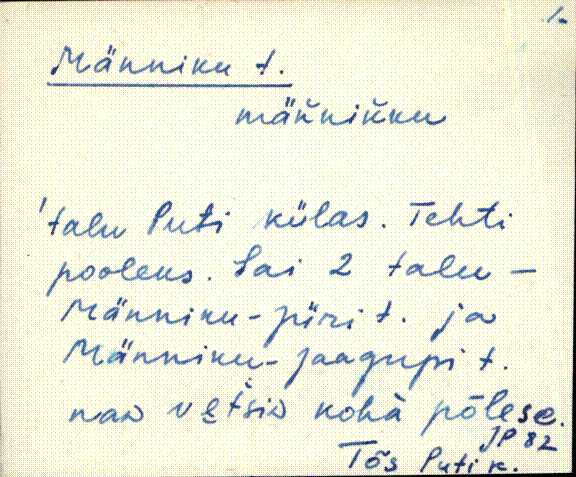 1.
Männiku t.
mäňniňku
'talu Puti külas. Tehti
pooleks. Sai 2 talu -
Männiku-püri t. ja
Männiku-Jaagupi t.
naa veťsiǝ kohà põlese.
JP 82
Tõs Puti k.